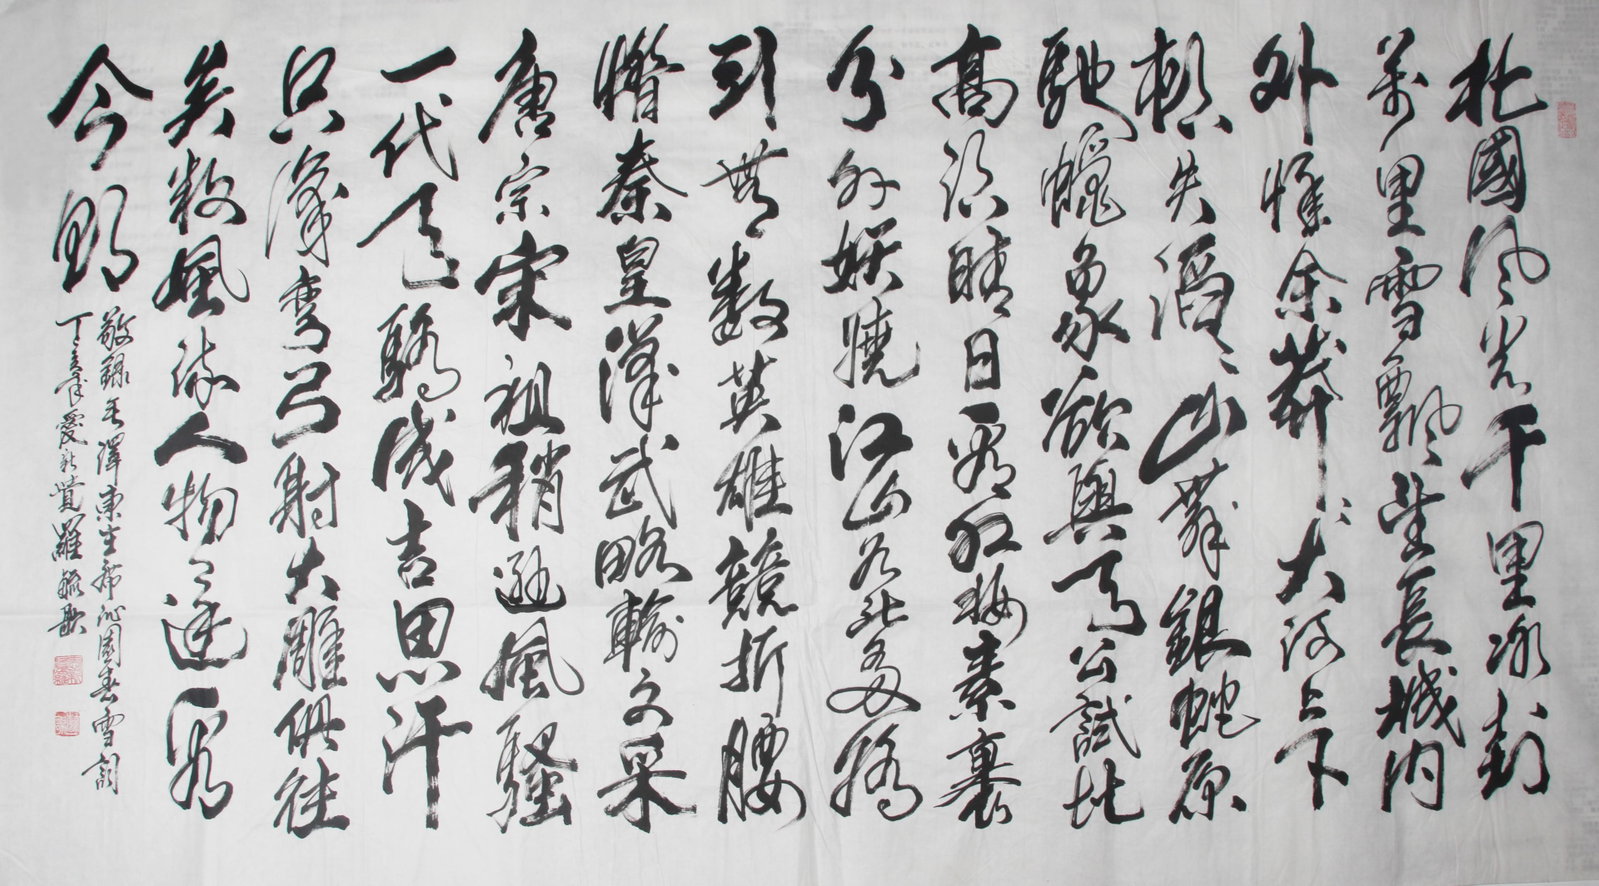 北國风光千里冰封
萬里雪飄望長城內
外惟余莽々大河上下
頓失滔々山舞銀蛇原
馳蠟象欲與天公試比
高須晴日看紅妝素裹
分外妖嬈江山如此多嬌
引無數英雄競折腰
惜秦皇漢武略輸文采
唐宗宋祖稍遜風騷
一代天驕成吉思汗
只識彎弓射大雕俱往
矣數風流人物々還看
今朝
敬錄毛澤東主席沁園春雪詞
丁亥年愛新覺羅毓